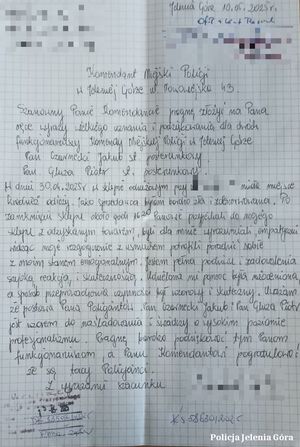 Jelenia Góra 10.05.2025r
Komendant Miejski Policji
w Jeleniej Górze ul. Nowowiejska 43
Szanowny Panie Komendancie pragnę złożyć na Pana
ręce wyrazy wielkiego uznania i podziękowania dla dwóch
funkcjonariuszy Komendy Miejskiej Policji w Jeleniej Górze
Pan Czerniecki Jakub st. posterunkowy
Pan Gluza Piotr st. posterunkowy.
W dniu 30.04.2025r w sklepie odzieżowym przy miała miejsce
kradzież odzieży. Jako sprzedawca byłam bardzo zdenerwowana. Po
zamknięciu sklepu około godz Panowie przyjechali do mojego
sklepu z odzyskanym towarem, byli dla mnie uprzejmi, empatyczni
widząc moje rozgoryczenie z uśmiechem potrafili poradzić sobie
z moim stanem emocjonalnym. Jestem pełna podziwu i zadowolenia
szybką reakcją, skutecznością. Udzielona mi pomoc była nieoceniona,
a sposób przeprowadzenia czynności był wzorowy i skuteczny. Uważam
że postawa Pana Policjantów, Pan Czerniecki Jakub i Pan Gluza Piotr
jest wzorem do naśladowania i świadczy o wysokim poziomie
profesjonalizmu. Pragnę bardzo podziękować tym Panom
funkcjonariuszom a Panu Komendantowi pogratulować
że są tacy Policjanci.
Z wyrazami szacunku
Policja Jelenia Góra